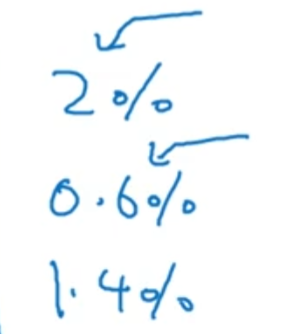 2%
0.6%
1.4%